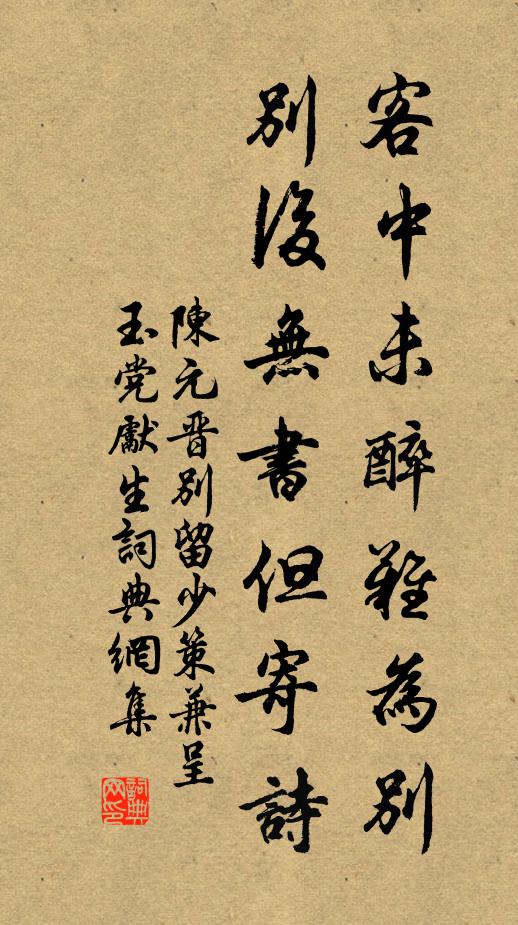 客中未醉難為別
別後無書但寄詩
陳元晋別留少策兼呈
玉党獻生詞典網集
詞典网印